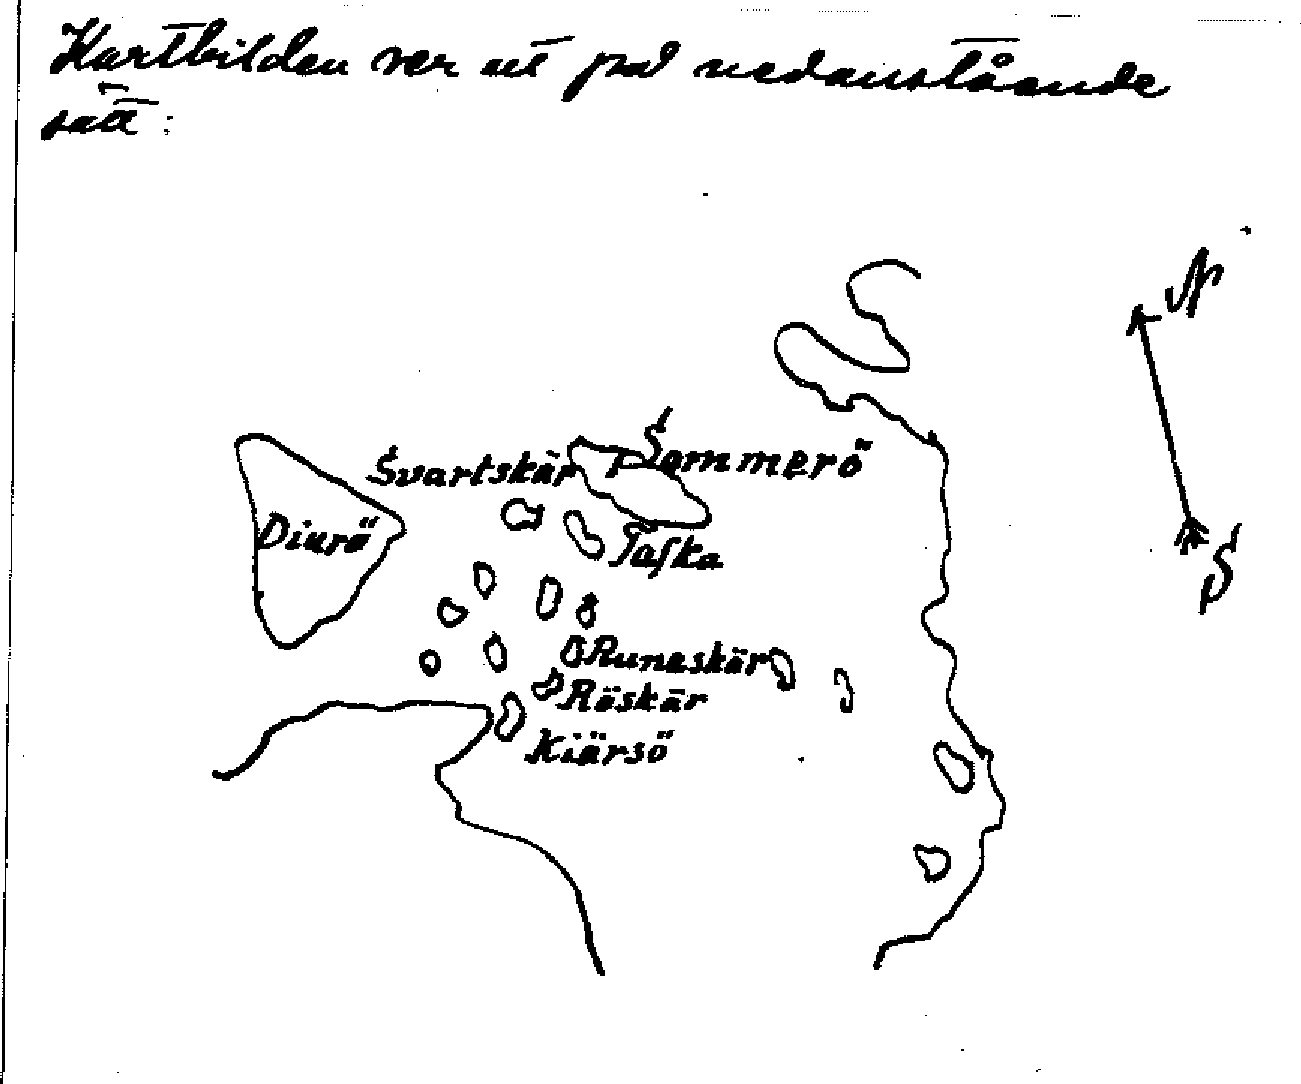 Kartbilden ser ut på nedanstående
sätt:
N
Sommerö
Svartskär
Diurö
Taska
S
Runaskär
Röskär
Kiärsö